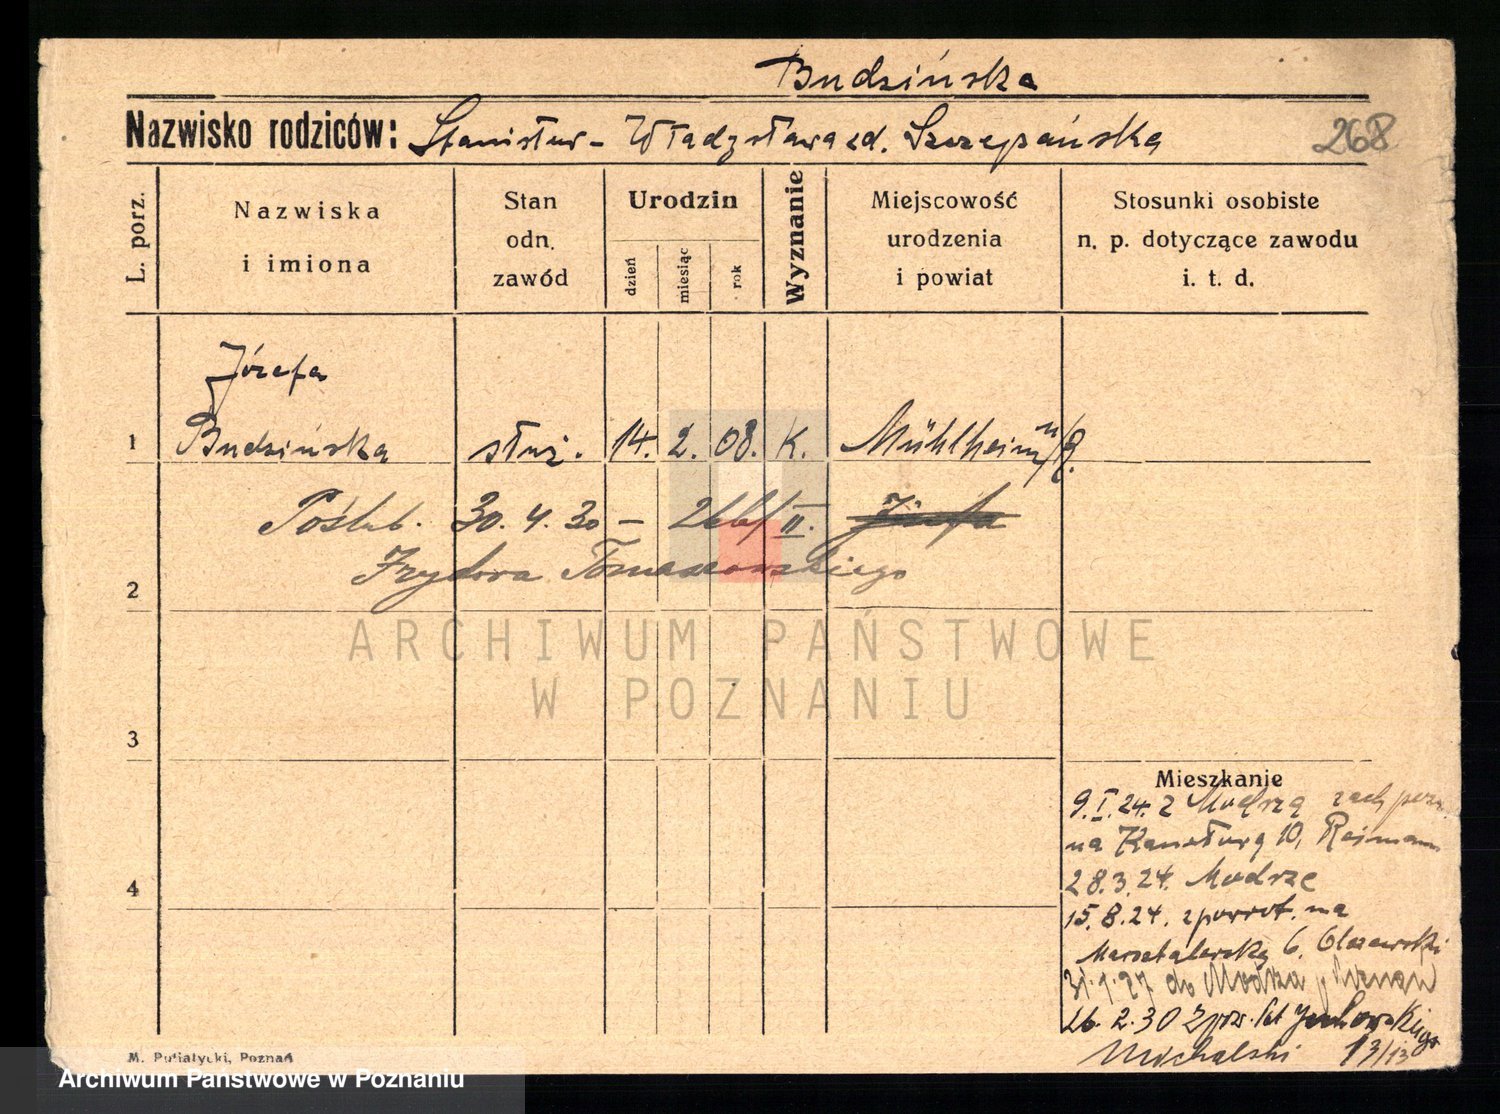 Budzińska
Nazwisko rodziców: Stanisław - Władysława zd. Szczepańska
268
L. porz.
Nazwiska
i imiona
Stan
odn.
zawód
Urodzin
dzień
miesiąc
rok
Wyznanie
Miejscowość
urodzenia
i powiat
Stosunki osobiste
n. p. dotyczące zawodu
i. t. d.
Józefa
1 Budzińska służ. 14. 2. 08. K. Mühlheim n/R.
Poślub. 30. 4. 30 – 266/II. Józefa
2 Izydora Tomaszewskiego
ARCHIWUM PAŃSTWOWE
W POZNANIU
3
4
Mieszkanie
9.I.24. z Modrzą zach pozn.
na 10, Reimann
28.3.24. Modrze
15.8.24. zpowrot. na
Masztalerską 6. Olszewski
31.1.27 do Modrza p. Poznań
26.2.30 zpow.
Michalski 13/13
M. Putiatycki, Poznań
Archiwum Państwowe w Poznaniu